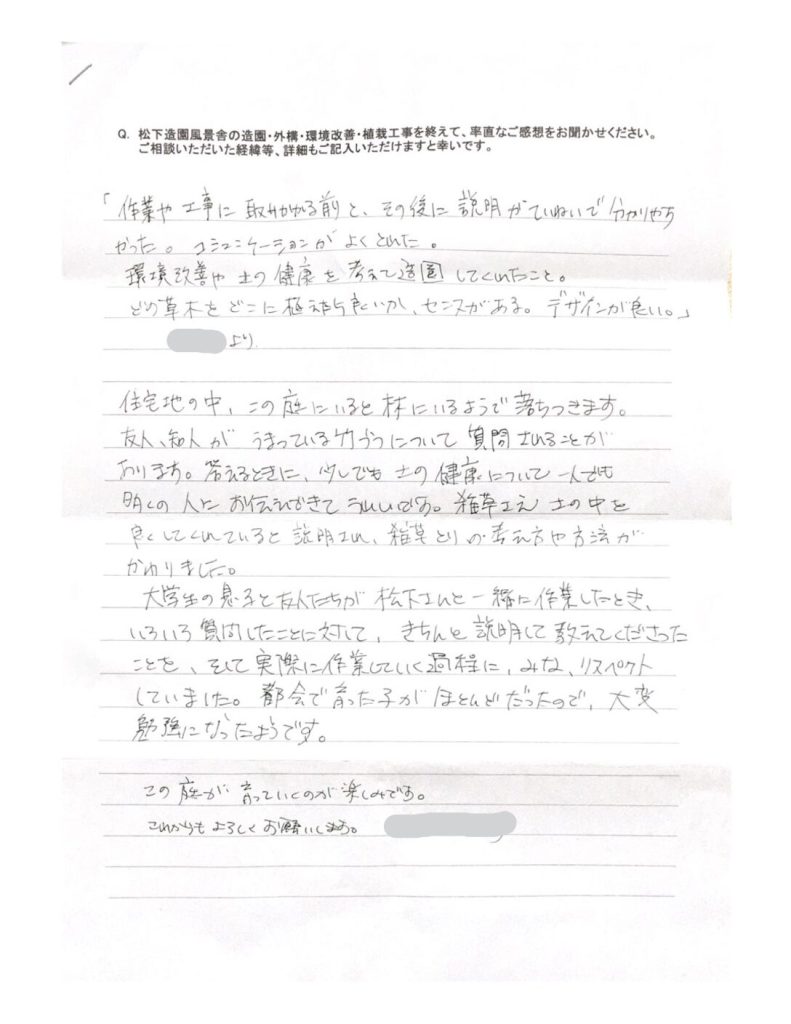 Q. 松下造園風景舎の造園・外構・環境改善・植栽工事を終えて、率直なご感想をお聞かせください。
ご相談いただいた経緯等、詳細もご記入いただけますと幸いです。
「作業や工事に取りかかる前と、その後に説明がていねいで分かりやす
かった。コミュニケーションがよくとれた。
環境改善や土の健康を考えて造園してくれたこと。
どの草木をどこに植えたら良いか、センスがある。デザインが良い。」
より
住宅地の中、この庭にいると林にいるようで落ちつきます。
友人、知人が うまっている竹づつについて質問されることが
あります。答えるときに、少しでも土の健康について一人でも
多くの人にお伝えできてうれしいです。雑草さえ土の中を
良くしてくれていると説明され、雑草とりの考え方や方法が
かわりました。
大学生の息子と友人たちが松下さんと一緒に作業したとき、
いろいろ質問したことに対して、きちんと説明して教えてくださった
ことを、そして実際に作業していく過程に、みな、リスペクト
していました。都会で育った子がほとんどだったので、大変
勉強になったようです。
この庭が育っていくのが楽しみです。
これからもよろしくお願いします。